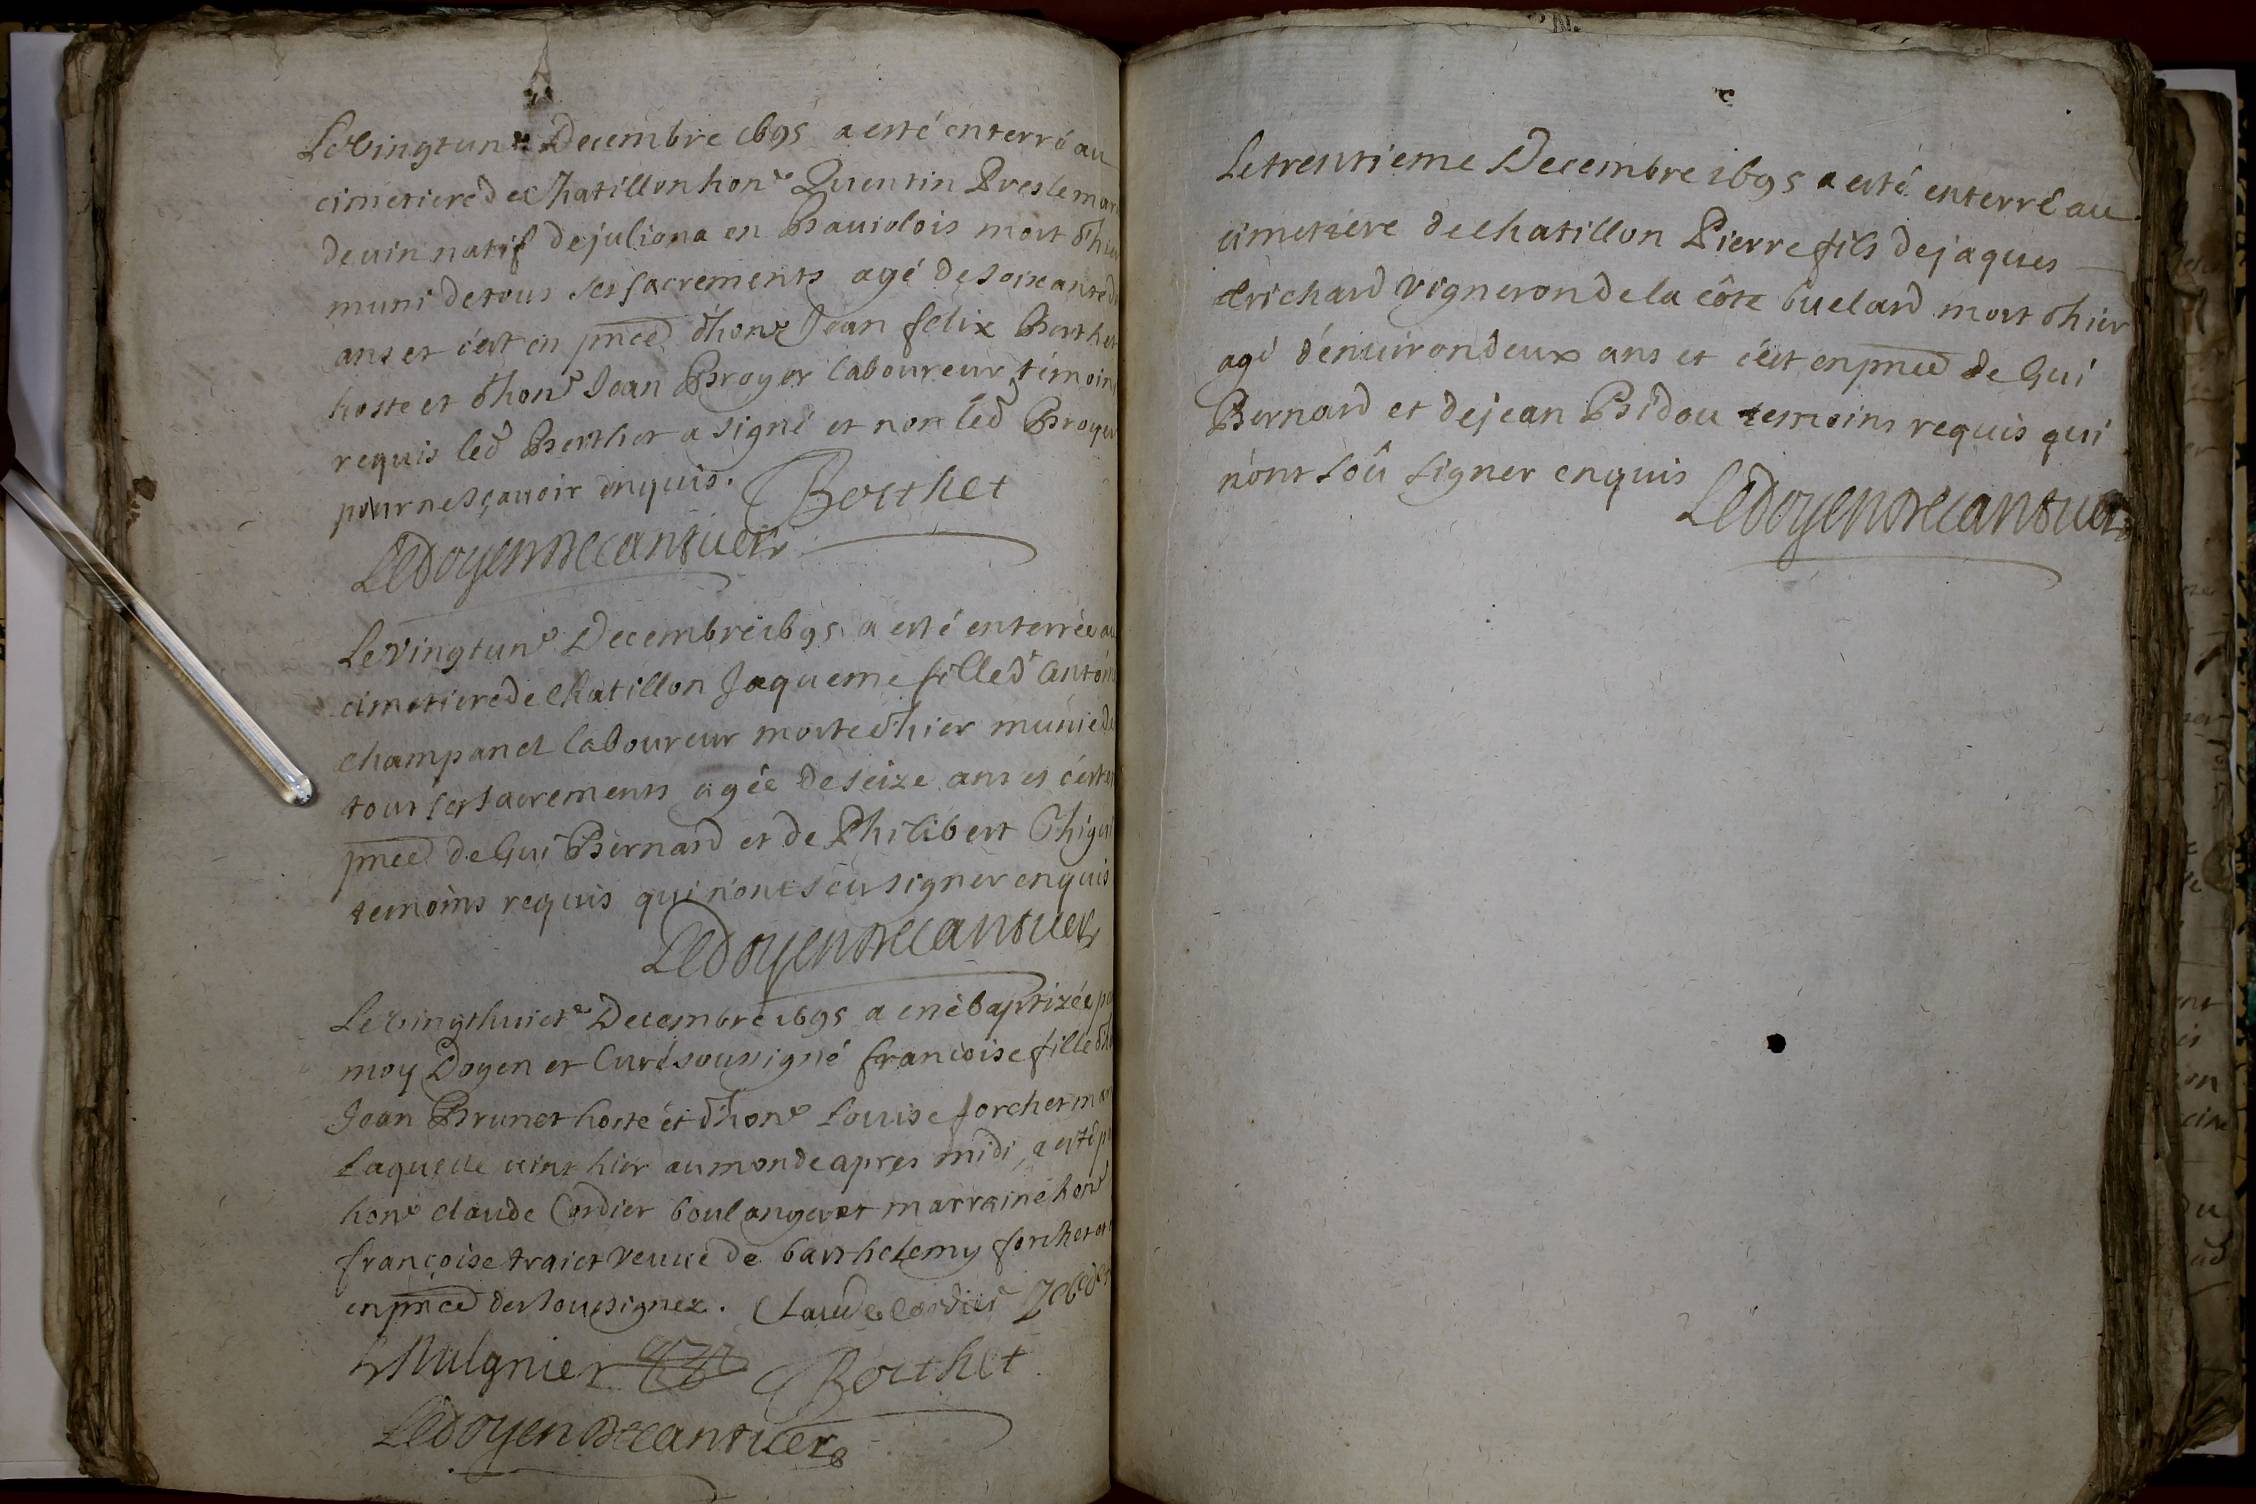 Le vingtun.e Decembre 1695 a esté enterré au
cimetiere de Chatillon hon.e Quentin Presle mar
de vin natif de juliona en Baujolois mort d'hier
muni de tous ses sacrements agé de soixante d
ans et c'est en pnce d'hon.e Jean felix Berthet
hoste et d'hon.e Jean Broyer laboureur témoins
requis led Berthet a signé et non led Broyer
pour ne sçavoir enquis. Berthet
Ledoyen Decantuer
Le vingtun.e Decembre 1695 a esté enterrée au
cimetiere de Chatillon Jaqueme fille d'Antoin
Champanel laboureur morte d'hier munie de
tous ses sacrements agée de seize ans et c'est en
pnce de Gui Bernard et de Philibert
temoins requis qui n'ont sçu signer enquis
Ledoyen Decantuer
Le vingthuict.e Decembre 1695 a esté baptizée p
moy Doyen et Curé soussigné francoise fille d'h
Jean Brunet hoste et d'hon.e Louise forchet mar
Laquelle vint hier au monde apres midi, a esté p
hon.e claude Cordier boulanger et marraine hon.e
françoise traict veuve de barthelemy forchet et
en pnce des soussignez. Claude Cordier
Mulgnier Berthet
Ledoyen Decantuer
Le trentieme Decembre 1695 a esté enterré au
cimetiere de chatillon Pierre fils de jaques
Erichard vigneron de la côte buelard mort d'hier
agé d'environ deux ans et c'est en pnce de Gui
Bernard et de jean Bidou temoins requis qui
n'ont soû signer enquis
Ledoyen Decantuer